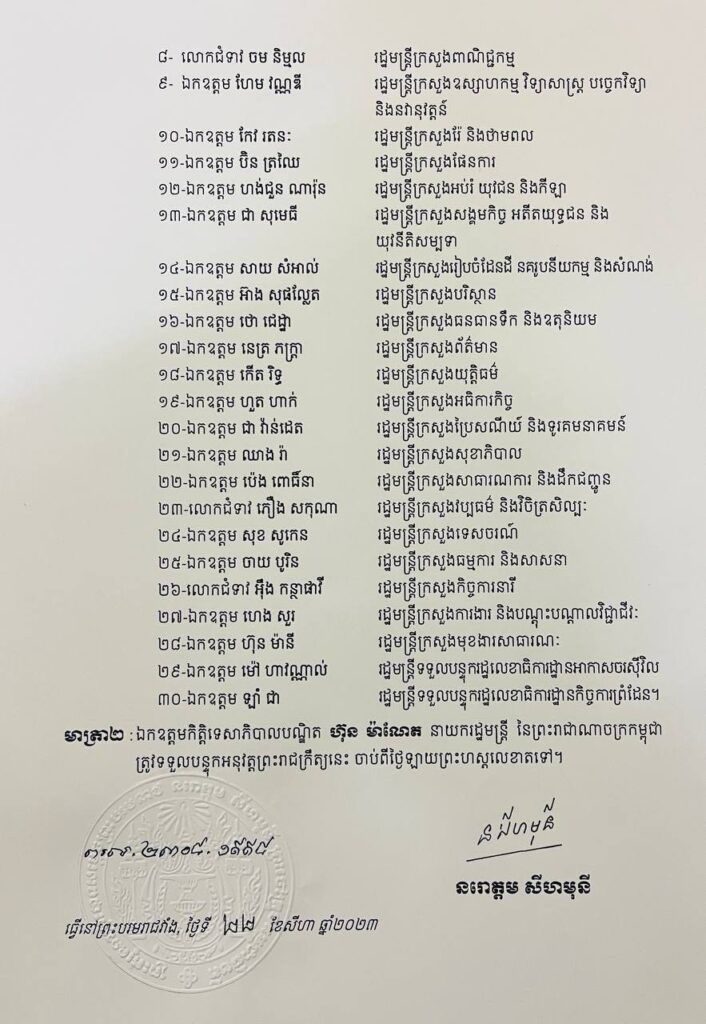 ៨- លោកជំទាវ ចម និម្មល រដ្ឋមន្ត្រីក្រសួងពាណិជ្ជកម្ម
៩- ឯកឧត្តម ហែម វណ្ណឌី រដ្ឋមន្ត្រីក្រសួងឧស្សាហកម្ម វិទ្យាសាស្ត្រ បច្ចេកវិទ្យា
និងនវានុវត្តន៍
១០-ឯកឧត្តម កែវ រតនៈ រដ្ឋមន្ត្រីក្រសួងរ៉ែ និងថាមពល
១១-ឯកឧត្តម ប៊ិន ត្រឈៃ រដ្ឋមន្ត្រីក្រសួងផែនការ
១២-ឯកឧត្តម ហង់ជួន ណារ៉ុន រដ្ឋមន្ត្រីក្រសួងអប់រំ យុវជន និងកីឡា
១៣-ឯកឧត្តម ជា សុមេធី រដ្ឋមន្ត្រីក្រសួងសង្គមកិច្ច អតីតយុទ្ធជន និង
យុវនីតិសម្បទា
១៤-ឯកឧត្តម សាយ សំអាល់ រដ្ឋមន្ត្រីក្រសួងរៀបចំដែនដី នគរូបនីយកម្ម និងសំណង់
១៥-ឯកឧត្តម អ៊ាង សុផល្លែត រដ្ឋមន្ត្រីក្រសួងបរិស្ថាន
១៦-ឯកឧត្តម ថោ ជេដ្ឋា រដ្ឋមន្ត្រីក្រសួងធនធានទឹក និងឧតុនិយម
១៧-ឯកឧត្តម នេត្រ ភក្ត្រា រដ្ឋមន្ត្រីក្រសួងព័ត៌មាន
១៨-ឯកឧត្តម កើត រិទ្ធ រដ្ឋមន្ត្រីក្រសួងយុត្តិធម៌
១៩-ឯកឧត្តម ហួត ហាក់ រដ្ឋមន្ត្រីក្រសួងអធិការកិច្ច
២០-ឯកឧត្តម ជា វ៉ាន់ដេត រដ្ឋមន្ត្រីក្រសួងប្រៃសណីយ៍ និងទូរគមនាគមន៍
២១-ឯកឧត្តម ឈាង រ៉ា រដ្ឋមន្ត្រីក្រសួងសុខាភិបាល
២២-ឯកឧត្តម ប៉េង ពោធិ៍នា រដ្ឋមន្ត្រីក្រសួងសាធារណការ និងដឹកជញ្ជូន
២៣-លោកជំទាវ ភឿង សកុណា រដ្ឋមន្ត្រីក្រសួងវប្បធម៌ និងវិចិត្រសិល្បៈ
២៤-ឯកឧត្តម សុខ សូកេន រដ្ឋមន្ត្រីក្រសួងទេសចរណ៍
២៥-ឯកឧត្តម ចាយ បូរិន រដ្ឋមន្ត្រីក្រសួងធម្មការ និងសាសនា
២៦-លោកជំទាវ អ៊ឹង កន្ថាផាវី រដ្ឋមន្ត្រីក្រសួងកិច្ចការនារី
២៧-ឯកឧត្តម ហេង សួរ រដ្ឋមន្ត្រីក្រសួងការងារ និងបណ្តុះបណ្តាលវិជ្ជាជីវៈ
២៨-ឯកឧត្តម ហ៊ុន ម៉ានី រដ្ឋមន្ត្រីក្រសួងមុខងារសាធារណៈ
២៩-ឯកឧត្តម ម៉ៅ ហាវណ្ណាល់ រដ្ឋមន្ត្រីទទួលបន្ទុករដ្ឋលេខាធិការដ្ឋានអាកាសចរស៊ីវិល
៣០-ឯកឧត្តម ឡាំ ជា រដ្ឋមន្ត្រីទទួលបន្ទុករដ្ឋលេខាធិការដ្ឋានកិច្ចការព្រំដែន។
មាត្រា២ : ឯកឧត្តមកិត្តិទេសាភិបាលបណ្ឌិត ហ៊ុន ម៉ាណែត នាយករដ្ឋមន្ត្រី នៃព្រះរាជាណាចក្រកម្ពុជា
ត្រូវទទួលបន្ទុកអនុវត្តព្រះរាជក្រឹត្យនេះ ចាប់ពីថ្ងៃឡាយព្រះហស្តលេខាតទៅ។
ន សីហមុនី
នរោត្តម សីហមុនី
ធ្វើនៅព្រះបរមរាជវាំង, ថ្ងៃទី ២២ ខែសីហា ឆ្នាំ២០២៣